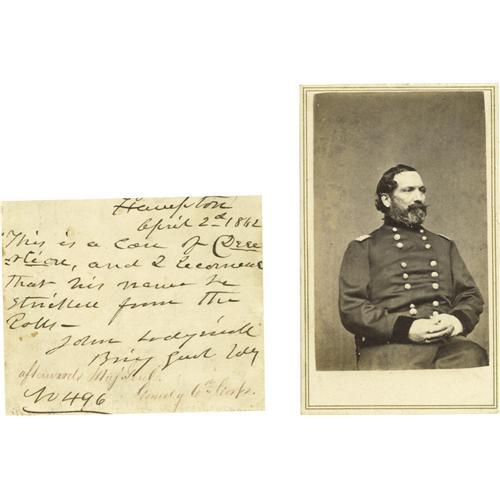 Hampton
April 2d 1862
This is a case of Dese
rtion, and I recommend
that his name be
stricken from the
Rolls—
John Sedgwick
Brig Genl Vols
afterwards Maj Genl.
Comdg 6th Corps.
No 496